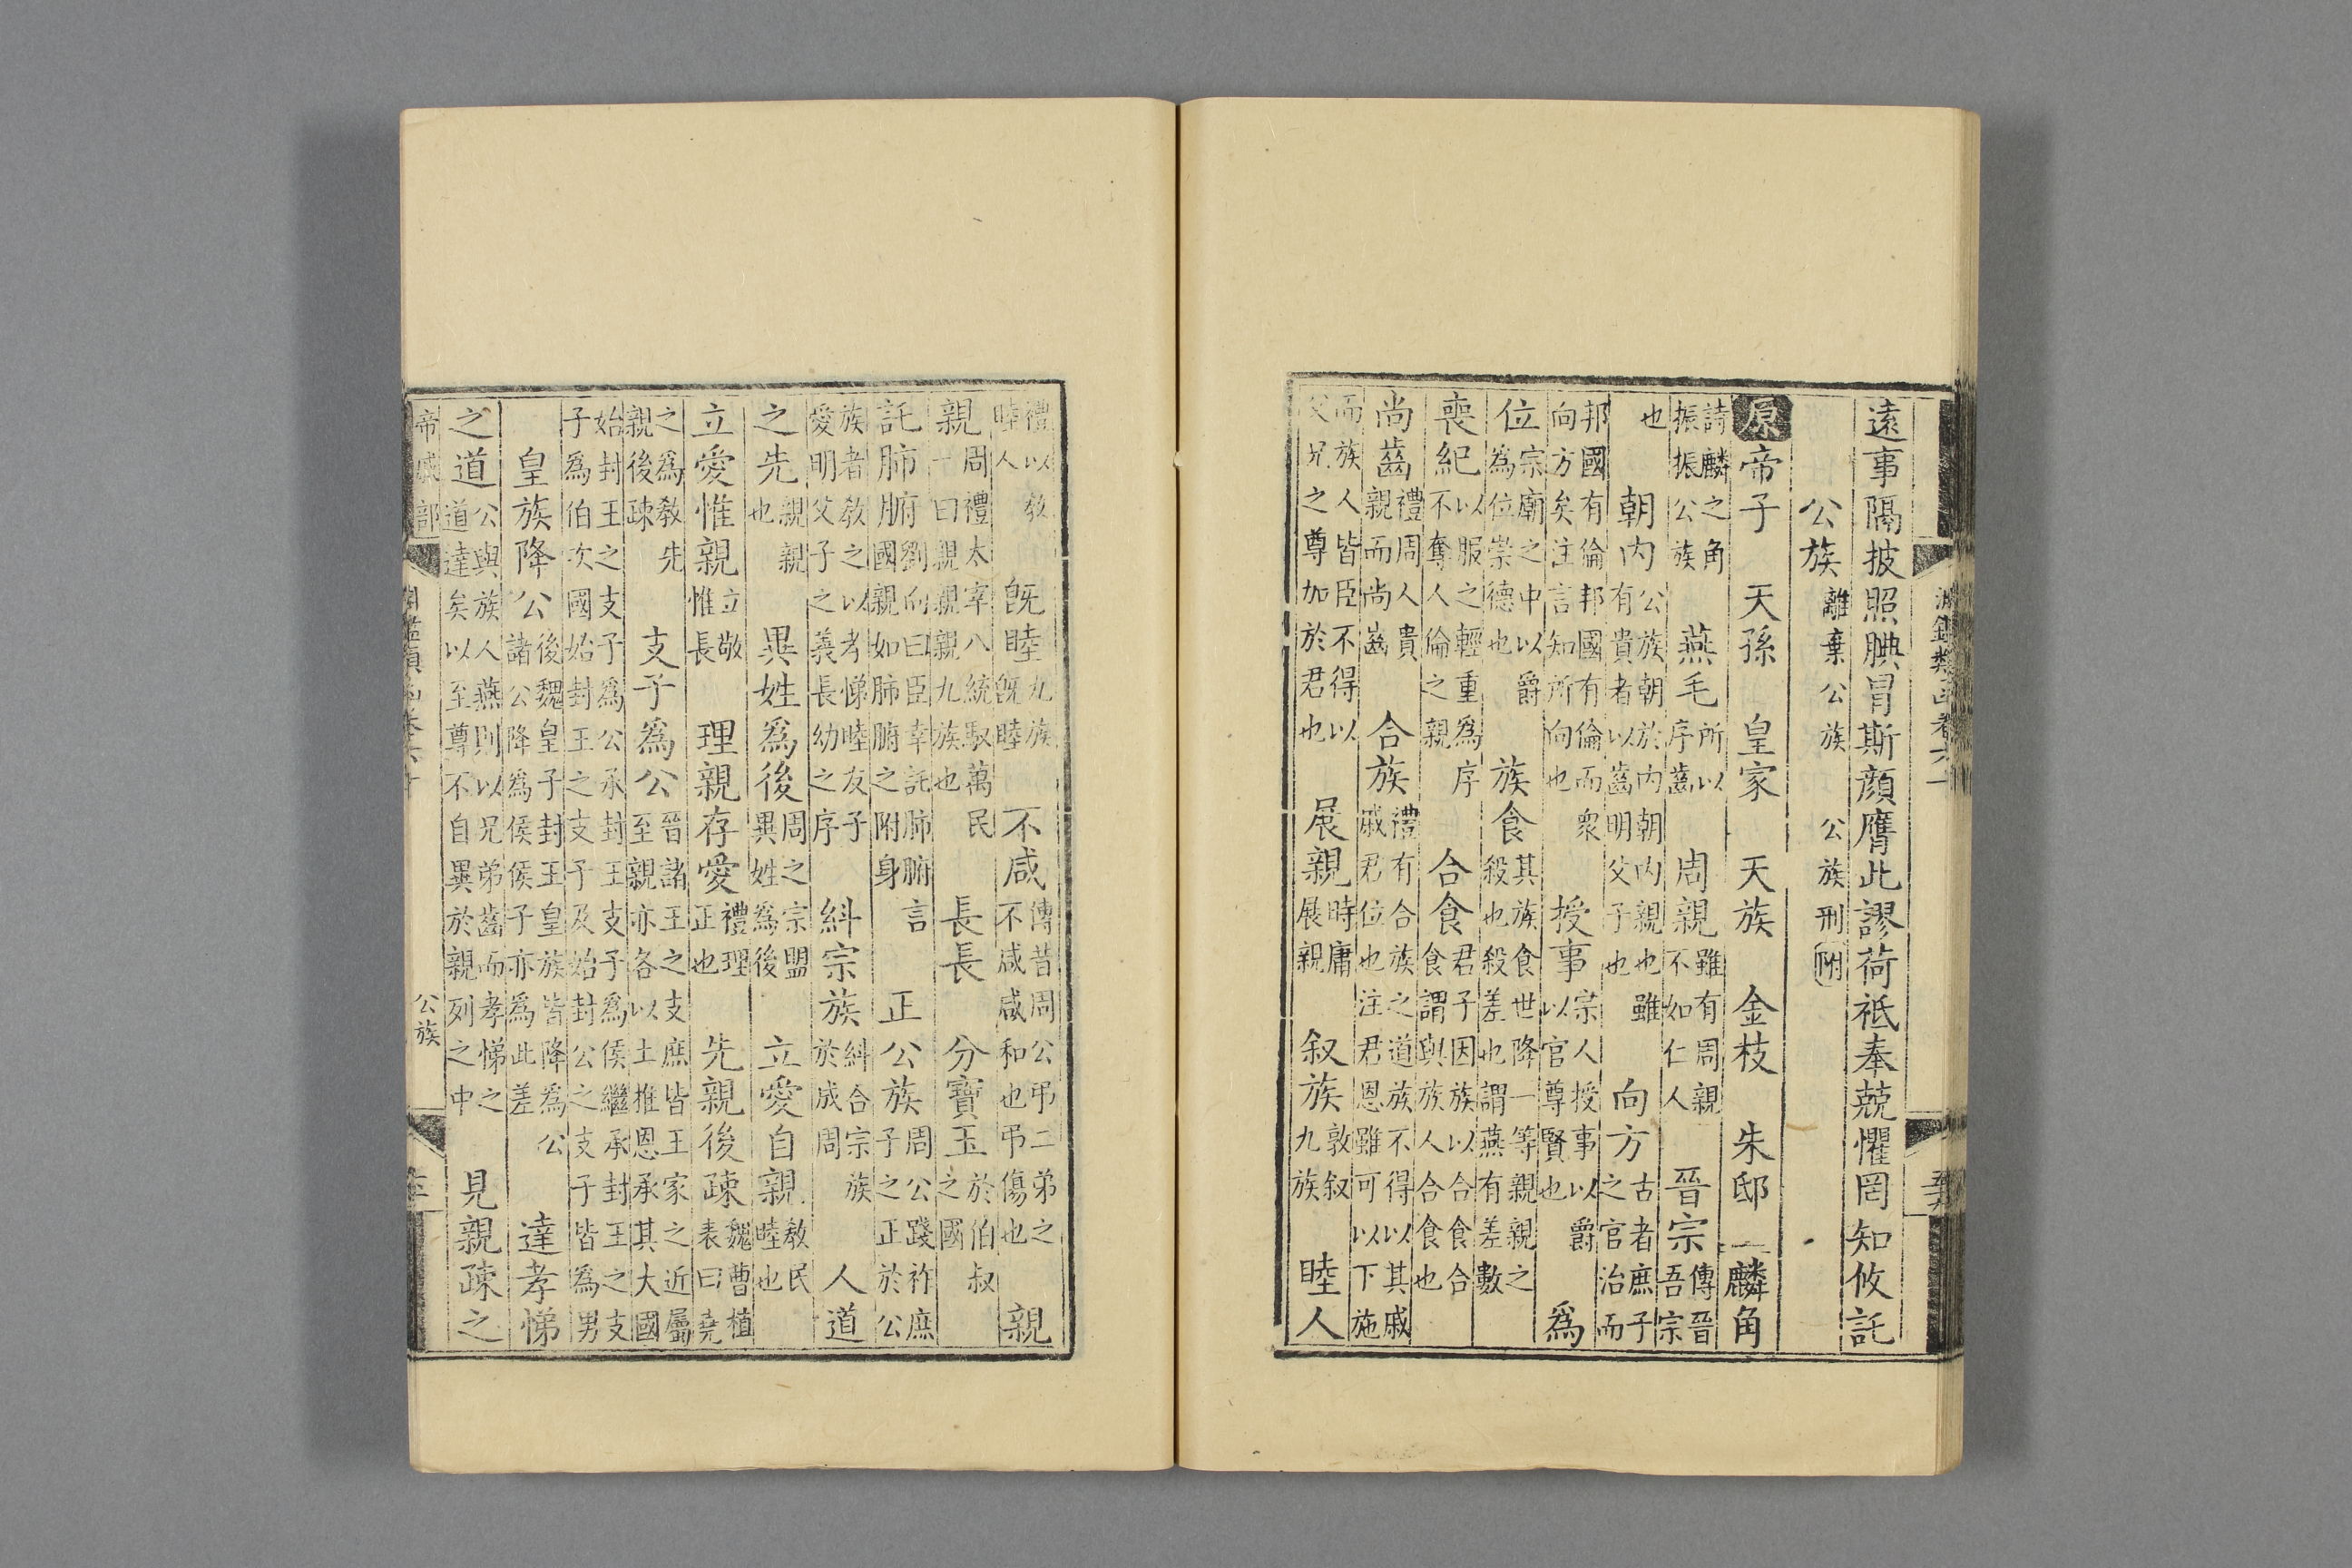 遠事隔披照腆冒斯顔膺此謬荷祗奉兢懼罔知攸託
公族離棄公族 公族刑附
原帝子 天孫 皇家 天族 金枝 朱邸 麟角
詩麟之角振振公族 燕毛所以序齒 周親雖有周親不如仁人 晉宗傳晉吾宗
也 朝内公族朝於内朝内親也雖有貴者以齒明父子也 向方古者庶子之官治而
邦國有倫邦國有倫而衆向方矣注言知所向也 授事宗人授事以爵以官尊賢也 爲
位宗廟之中以爵為位崇德也 族食其族食世降一等親親之殺也殺差也謂燕有差數
喪紀以服之輕重爲序不奪人倫之親 合食君子因族以合食合食謂與族人合食也
尚齒禮周人貴親而尚齒 合族禮有合族之道族不得以其戚戚君位也注君恩雖可以下施
而族人皆臣不得以父兄之尊加於君也 展親時庸展親 叙族敦叙九族 睦人
禮以教睦人 既睦九族既睦 不咸傳昔周公弔二弟之不咸咸和也弔傷也 親
親周禮太宰八統馭萬民一曰親親親親九族也 長長 分寶玉於伯叔之國
託肺腑劉向曰臣幸託肺腑國親如肺腑之附身言 正公族周公踐祚庶子之正於公
族者教之以孝悌睦友子愛明父子之義長幼之序 糾宗族糾合宗族於成周 人道
之先親親也 異姓爲後周之宗盟異姓為後 立愛自親教民睦也
立愛惟親立敬惟長 理親存愛禮理正也 先親後疎魏曹植表曰堯
之為教先親後疎 支子爲公晉諸王之支庶皆王家之近屬至親亦各以土推恩承其大國
始封王之支子為公承封王支子為侯繼承封王之支子為伯次國始封王之支子及始封公之支子皆為男
皇族降公後魏皇子封王皇族皆降爲公諸公降爲侯侯子亦爲此差 達孝悌
之道公與族人燕則以兄弟齒而孝悌之道達矣以至尊不自異於親列之中 見親疎之
帝戚部 公族